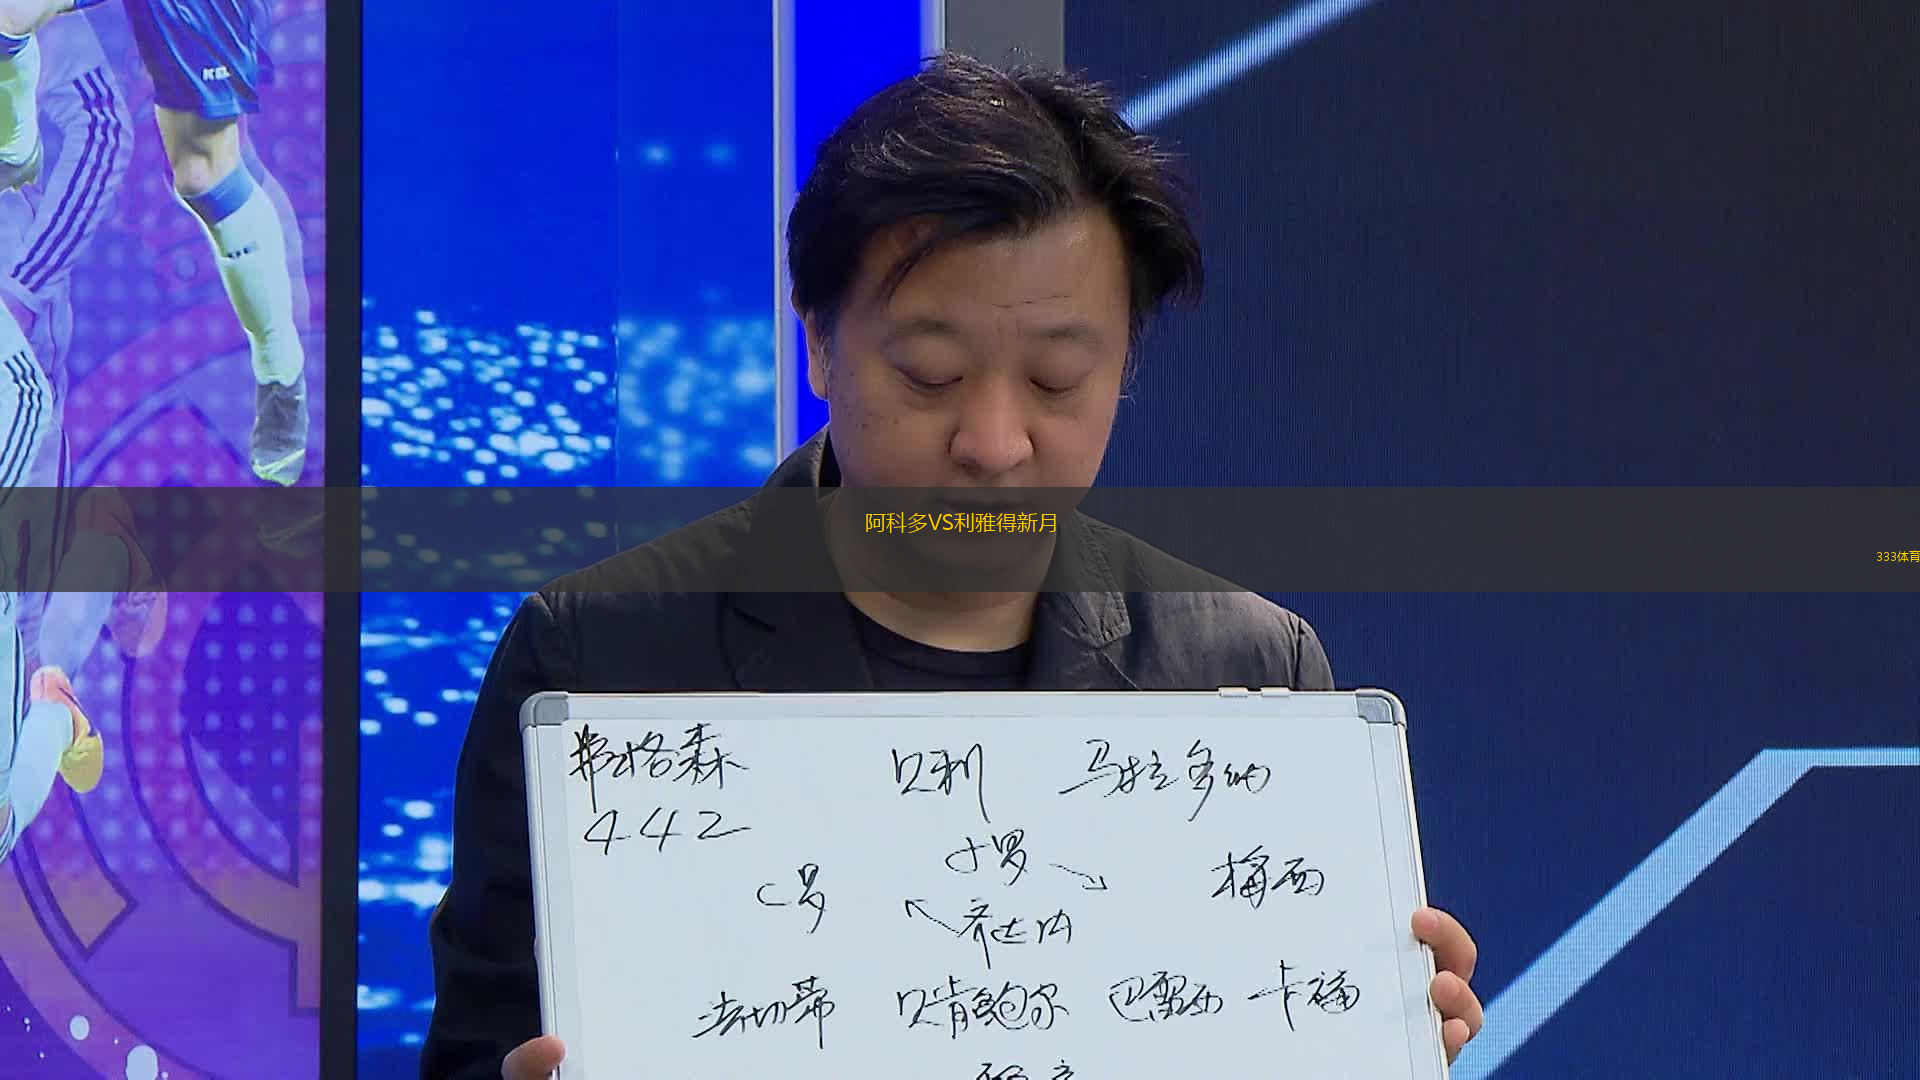 阿科多VS利雅得新月
333体育
弗格森 贝利 马拉多纳
442
小罗
C罗 梅西
齐达内
法切蒂 贝肯鲍尔 巴雷西 卡福